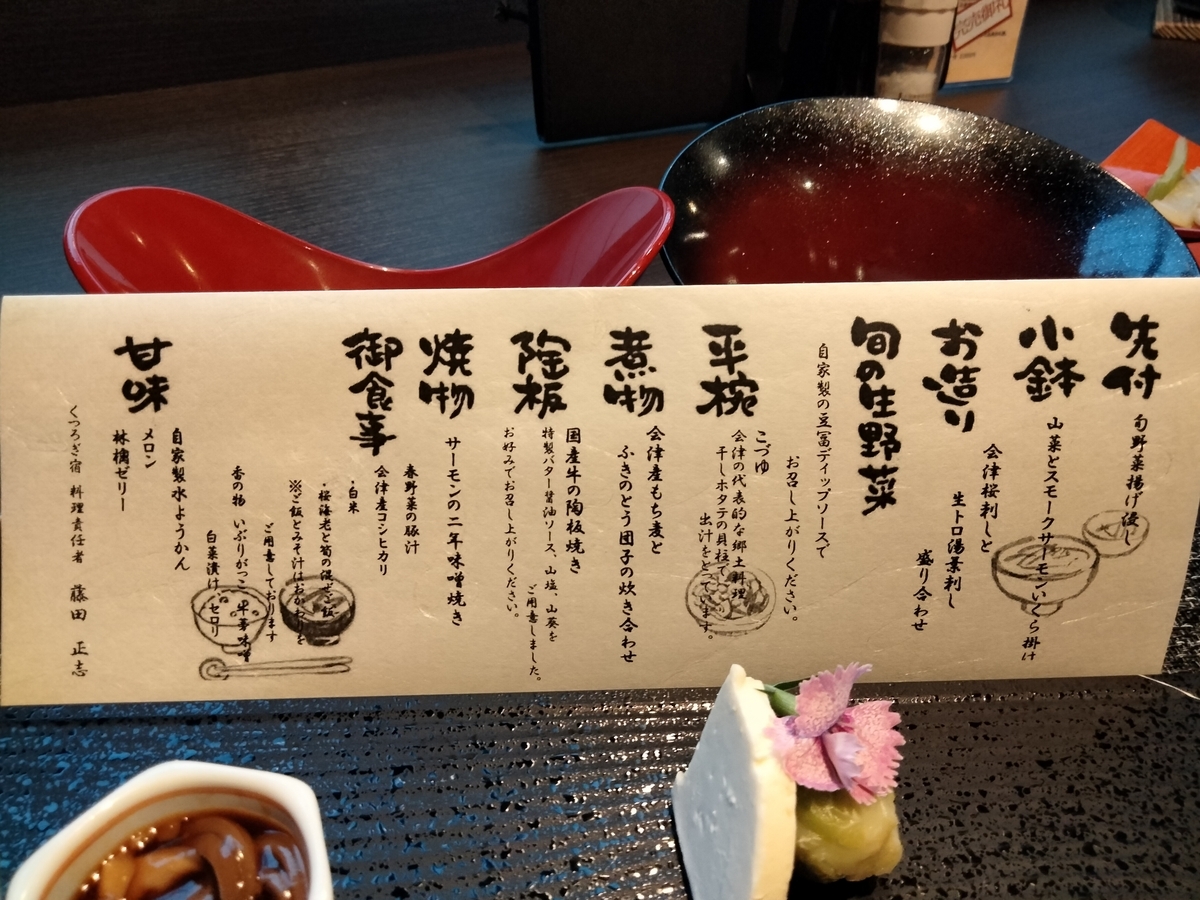 先付
旬野菜揚げ浸し
小鉢
山菜とスモークサーモンいくら掛け
お造り
会津桜刺しと
生トロ湯葉刺し
盛り合わせ
旬の生野菜
自家製の豆冨ディップソースで
お召し上がりください。
平椀
こづゆ
会津の代表的な郷土料理
干しホタテの貝柱で
出汁をとっています。
煮物
会津産もち麦と
ふきのとう団子の炊き合わせ
陶板
国産牛の陶板焼き
特製バター醤油ソース、山塩、山葵を
ご用意しました。
お好みでお召し上がりください。
焼物
サーモンの二年味噌焼き
御食事
春野菜の豚汁
会津産コシヒカリ
・白米
・桜海老と筍の混ぜご飯
※ご飯とみそ汁はおかわりを
ご用意しております
香の物 いぶりがっこ
白菜漬け
セロリ
甘味
自家製水ようかん
メロン
林檎ゼリー
くつろぎ宿 料理責任者 藤田 正志
完売御礼